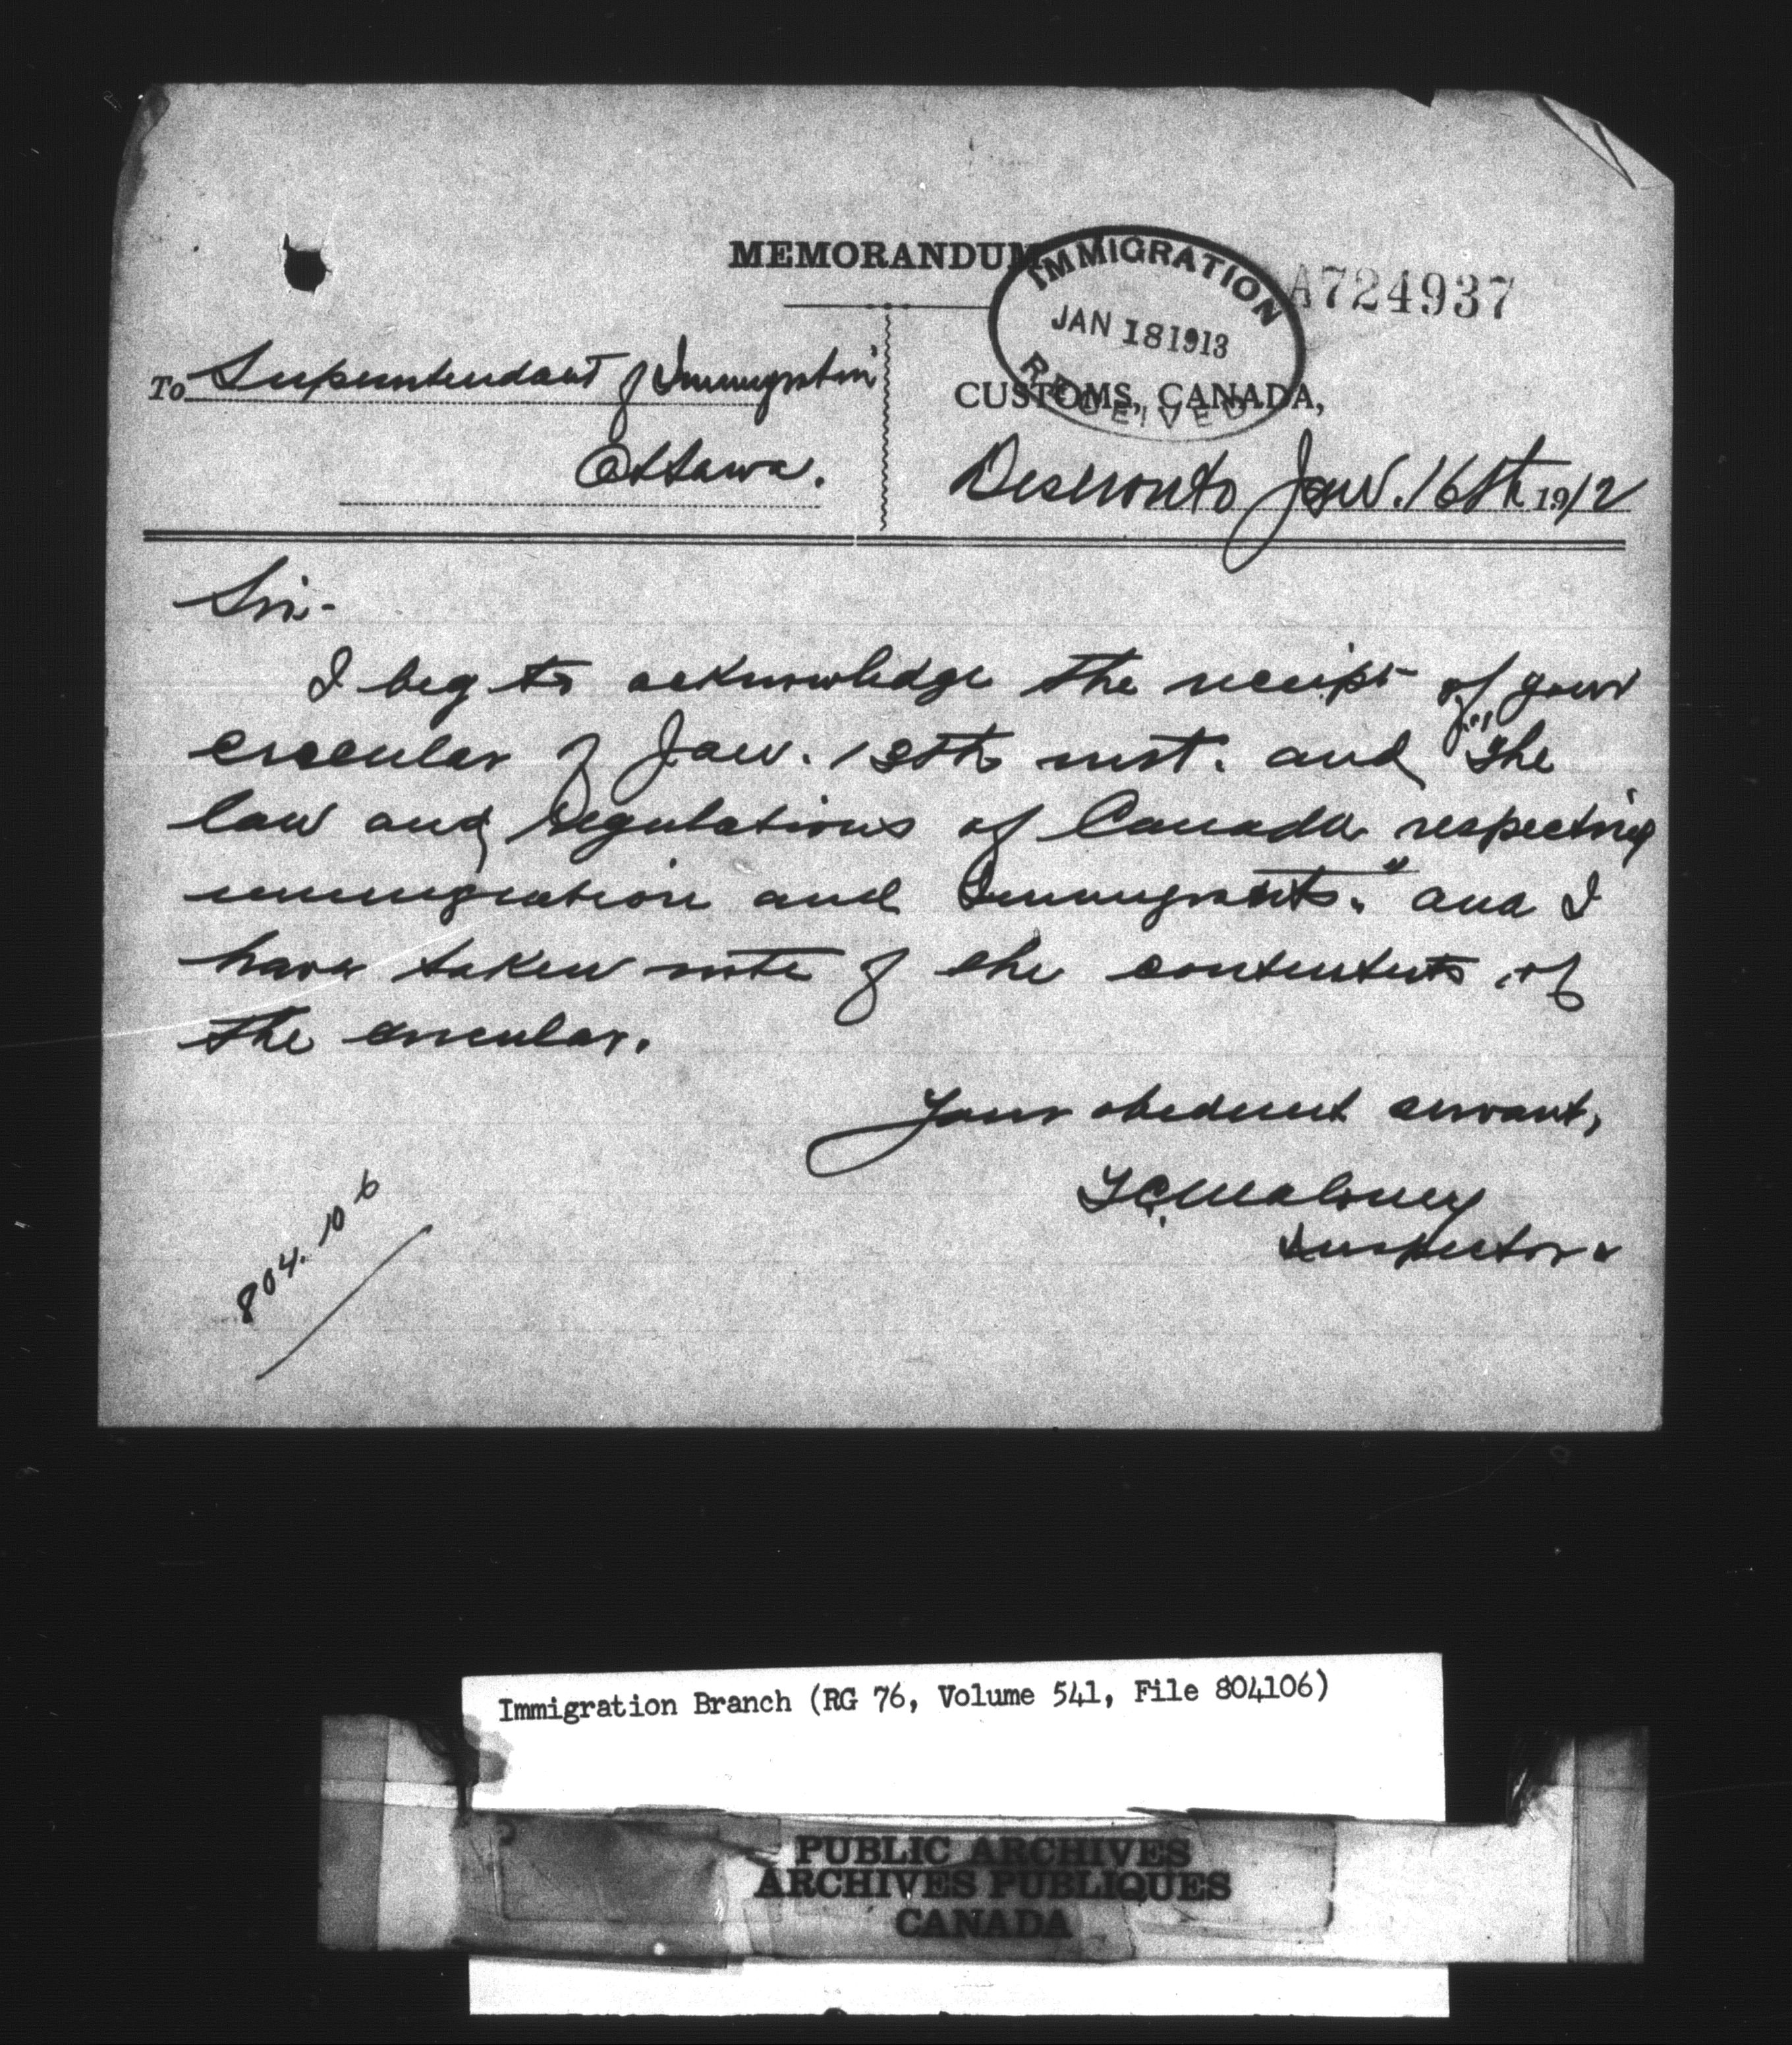 MEMORANDUM
IMMIGRATION
JAN 18 1913
RECEIVED
A724937
To Superintendant of Immigration
Ottawa.
CUSTOMS, CANADA,
Deseronto Jan. 16th 1912
Sir-
I beg to acknowledge the receipt of your
circular of Jan. 13th inst. and "The
law and Regulations of Canada respecting
immigration and Immigrants." and I
have taken note of the contentents of
the circular.
Your obedient servant,
Maloney
Inspector
804.106
Immigration Branch (RG 76, Volume 541, File 804106)
PUBLIC ARCHIVES
ARCHIVES PUBLIQUES
CANADA